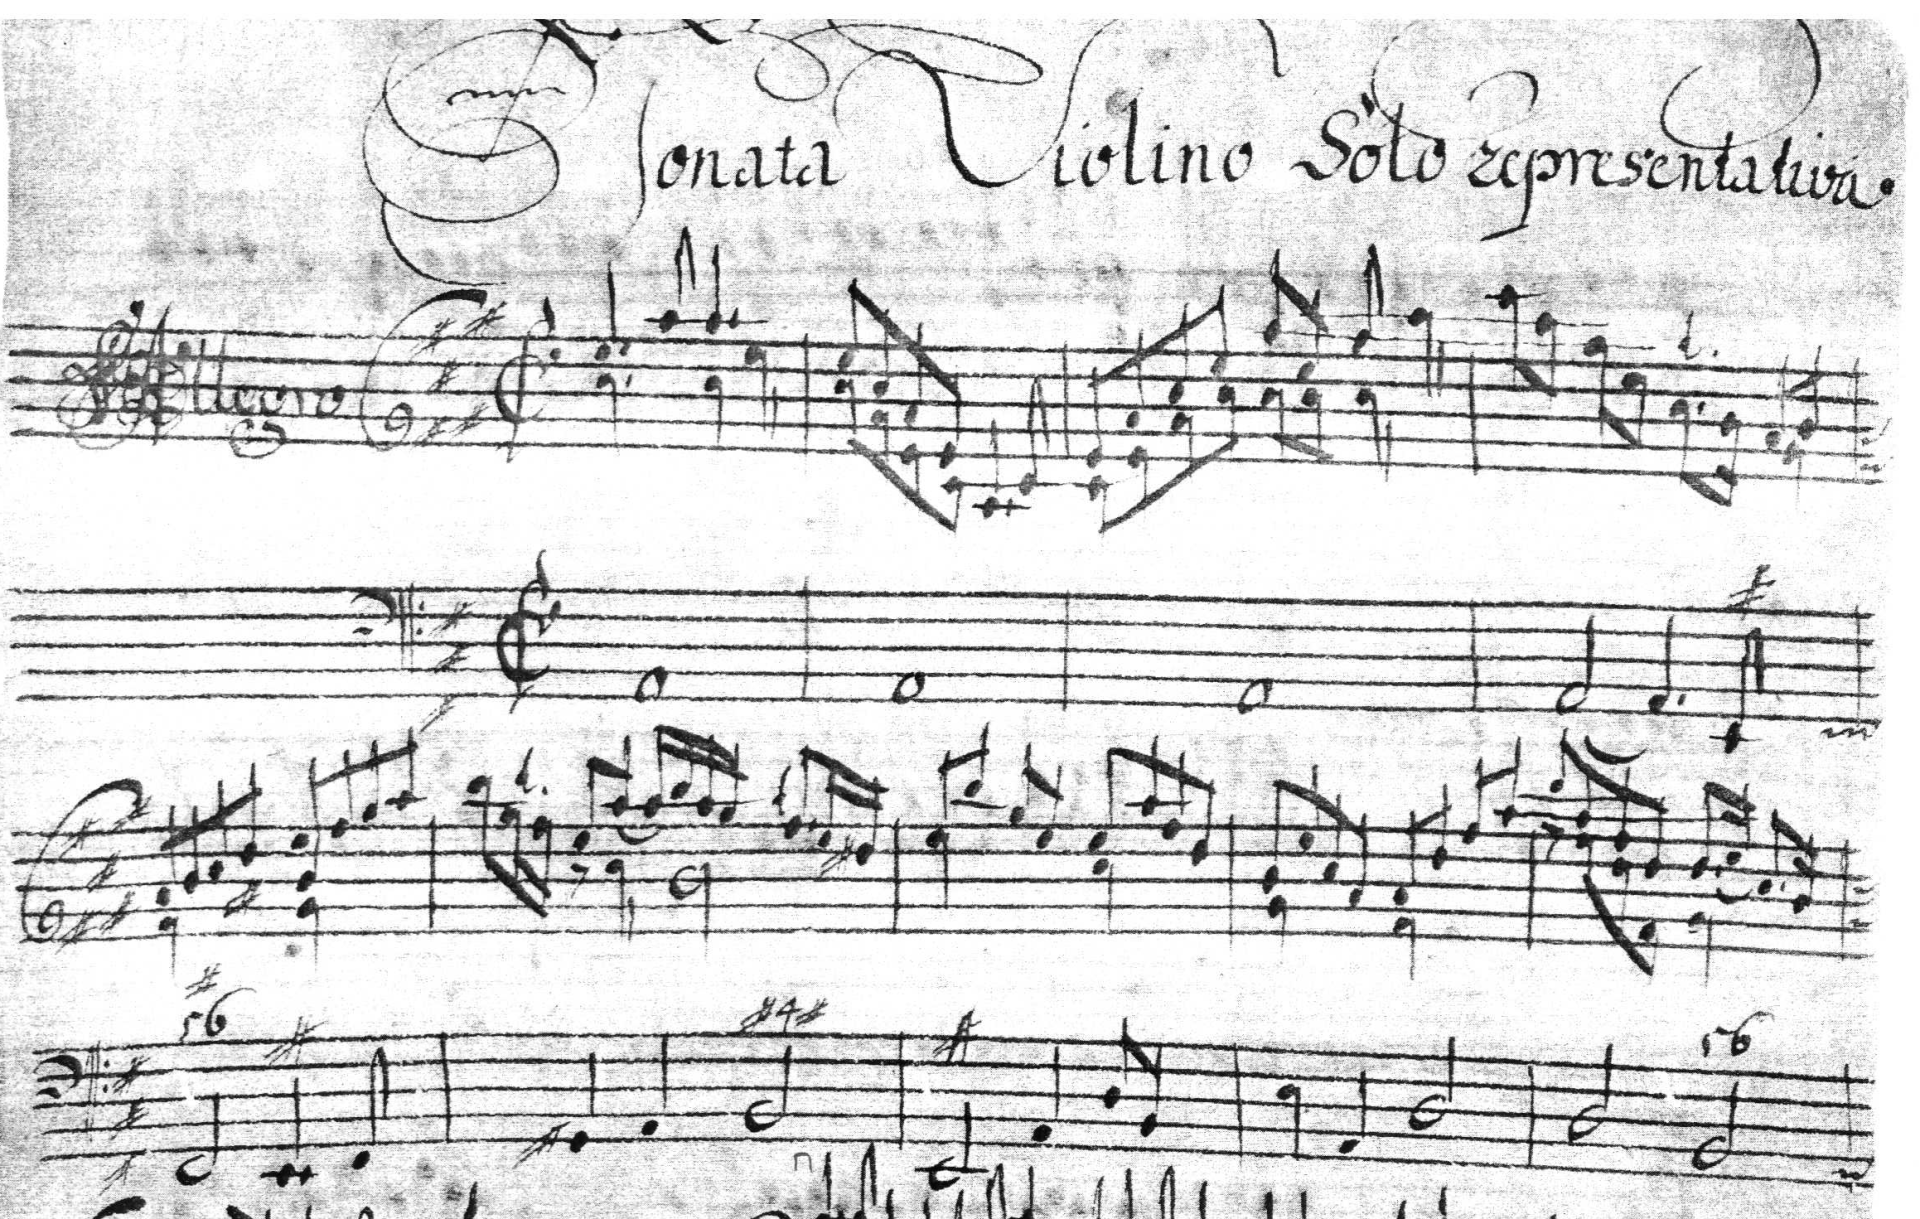 Sonata Violino Solo representativa.
Allegro
56
#4#
56